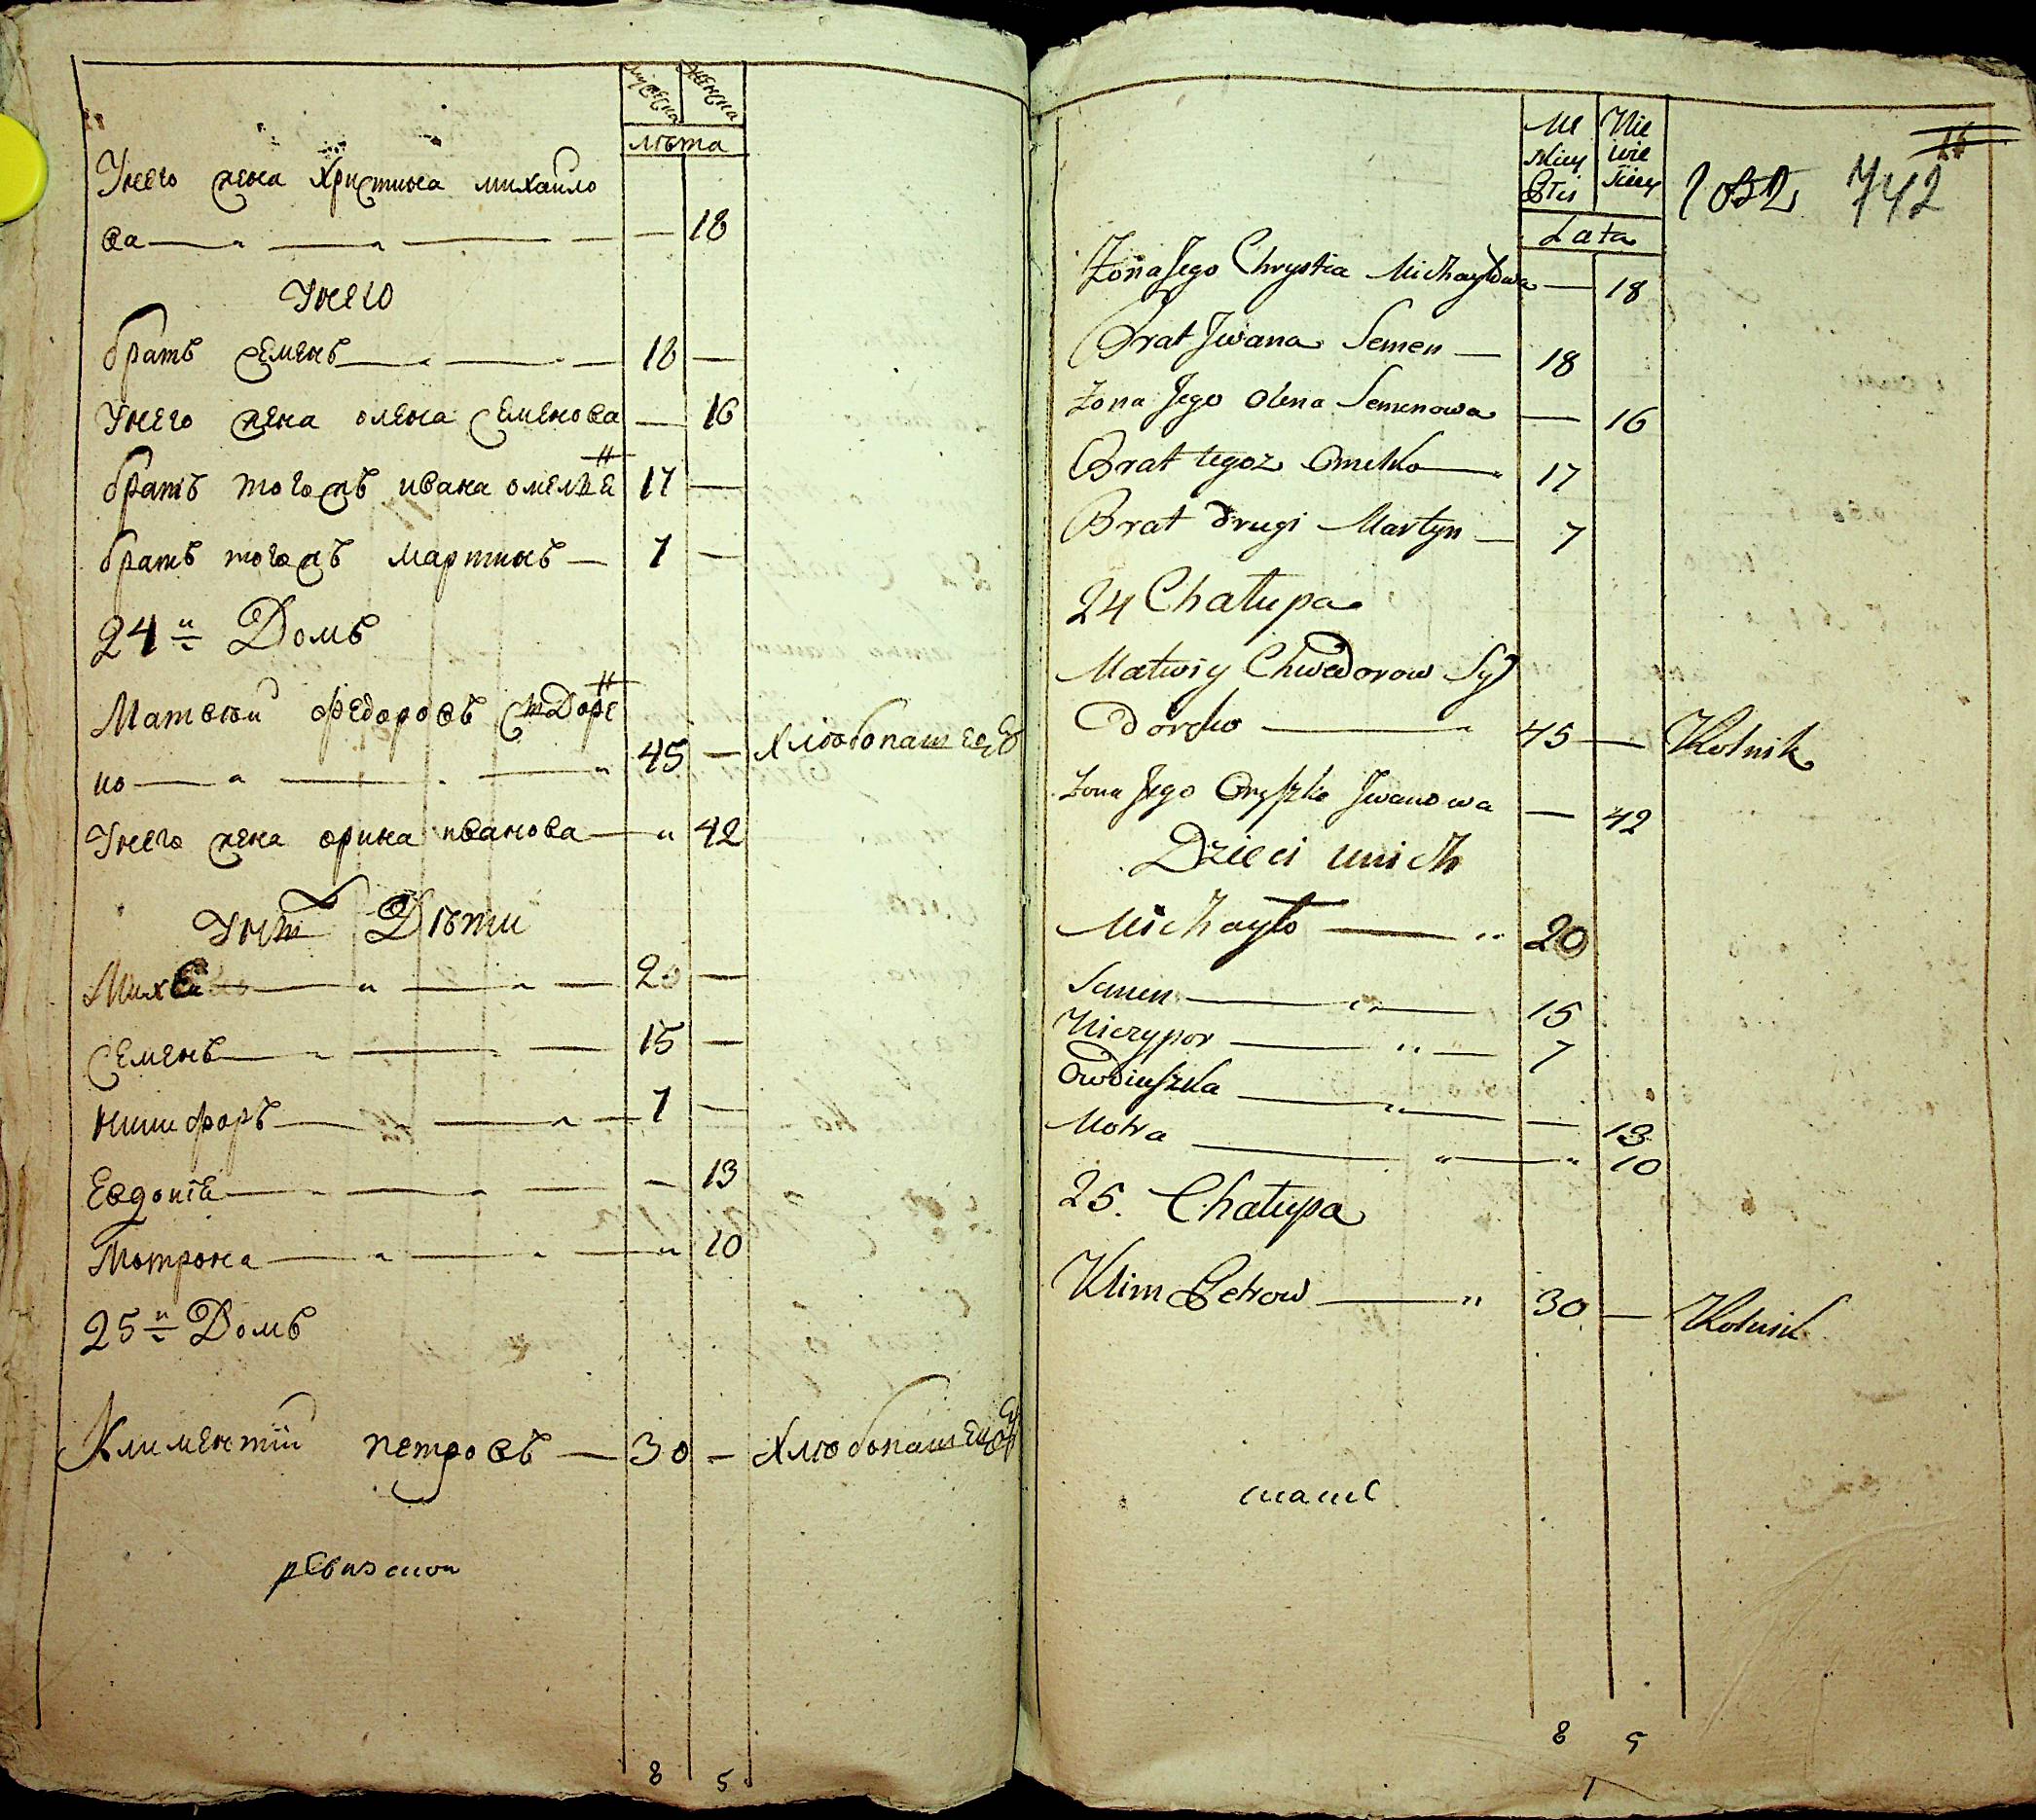 мужеска женска
лѣта
Унего жена Христина михайло
ва 18
Унего
братъ семенъ 18
Унего жена олена семенова 16
братъ тогожъ ивана омелъе 17
братъ тогожъ мартинъ 7
24й Домъ
Матвѣй федоровъ сидоре
нко 45 хлѣбопашецъ
Унего жена орина иванова 42
Уних Дѣти
Михайло 20
семенъ 15
никифоръ 7
Евдокія 13
Мотрона 10
25й Домъ
Климентій петровъ 30 хлѣбопашецъ
ревизской
8 5
Me Nie
skiey wie
Płci skiey
Lata
742
Żona Jego Chrystia Michayłowa 18
Brat Jwana Semen 18
Żona Jego Olena Semenowa 16
Brat tegoż Omelko 17
Brat drugi Martyn 7
24 Chałupa
Matwiy Chwedorow Sy
dorko 45 Rolnik
Żona Jego Oryszka Jwanowa 42
Dzieci unich
Michayło 20
Semen 15
Niczypor 7
Owdiuszka 13
Motra 10
25. Chałupa
Klim Petrow 30 Rolnik
8 5